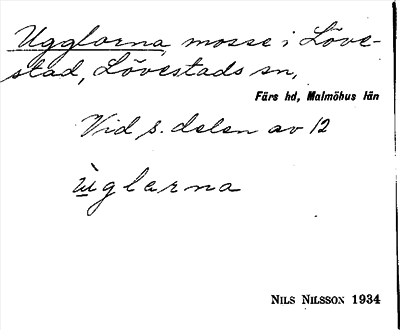 Ugglorna, mosse i Löve-
stad, Lövestads sn,
Färs hd, Malmöhus län
Vid s. delen av 12
ùglarna
NILS NILSSON 1934